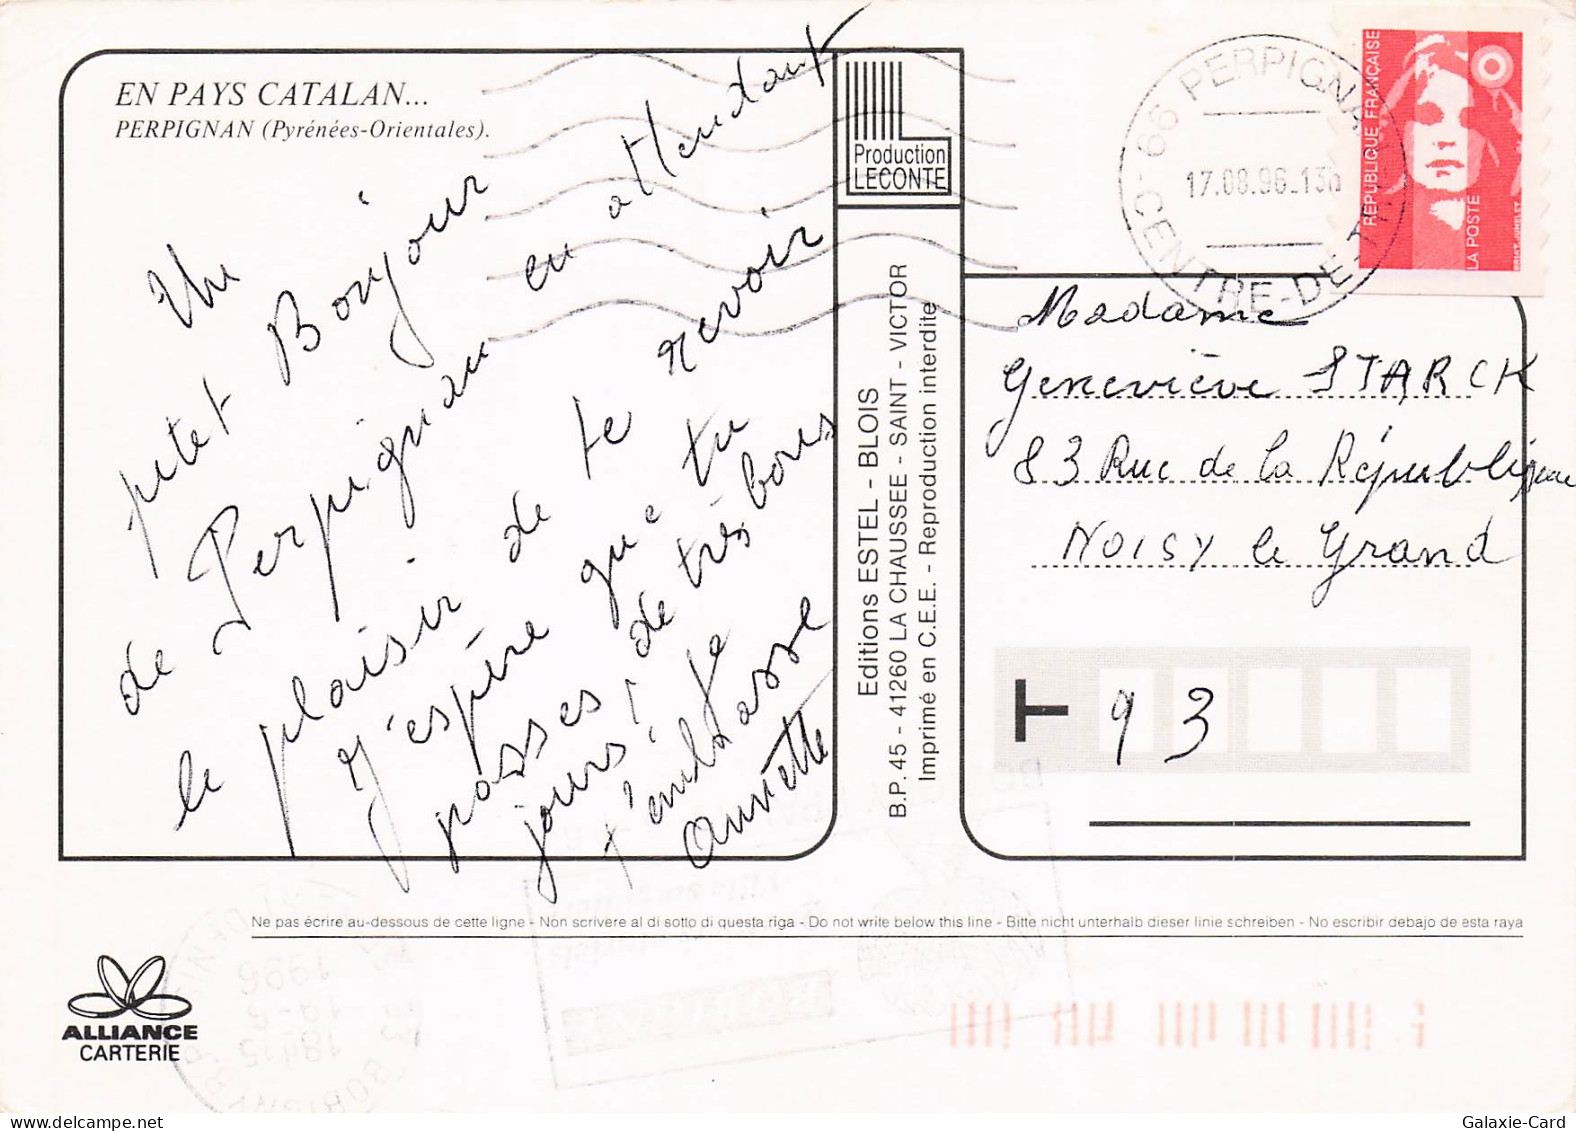 EN PAYS CATALAN...
PERPIGNAN (Pyrénées-Orientales).
Un
petit Bonjour
de Perpignan en attendant
le plaisir de te revoir
J'espère que tu
passes de très bons
jours! Je
t'embrasse
Annette
Production
LECONTE
Editions ESTEL - BLOIS
B.P. 45 - 41260 LA CHAUSSEE - SAINT - VICTOR
Imprimé en C.E.E. - Reproduction interdite
66 PERPIGNAN
17.08.96.13h
CENTRE-DE-TRI
REPUBLIQUE FRANÇAISE
LA POSTE
Madame
Geneviève STARCK
83 Rue de la République
NOISY le Grand
T 93
Ne pas écrire au-dessous de cette ligne - Non scrivere al di sotto di questa riga - Do not write below this line - Bitte nicht unterhalb dieser linie schreiben - No escribir debajo de esta raya
ALLIANCE
CARTERIE
1996
BOBIGNY
Galaxie-Card